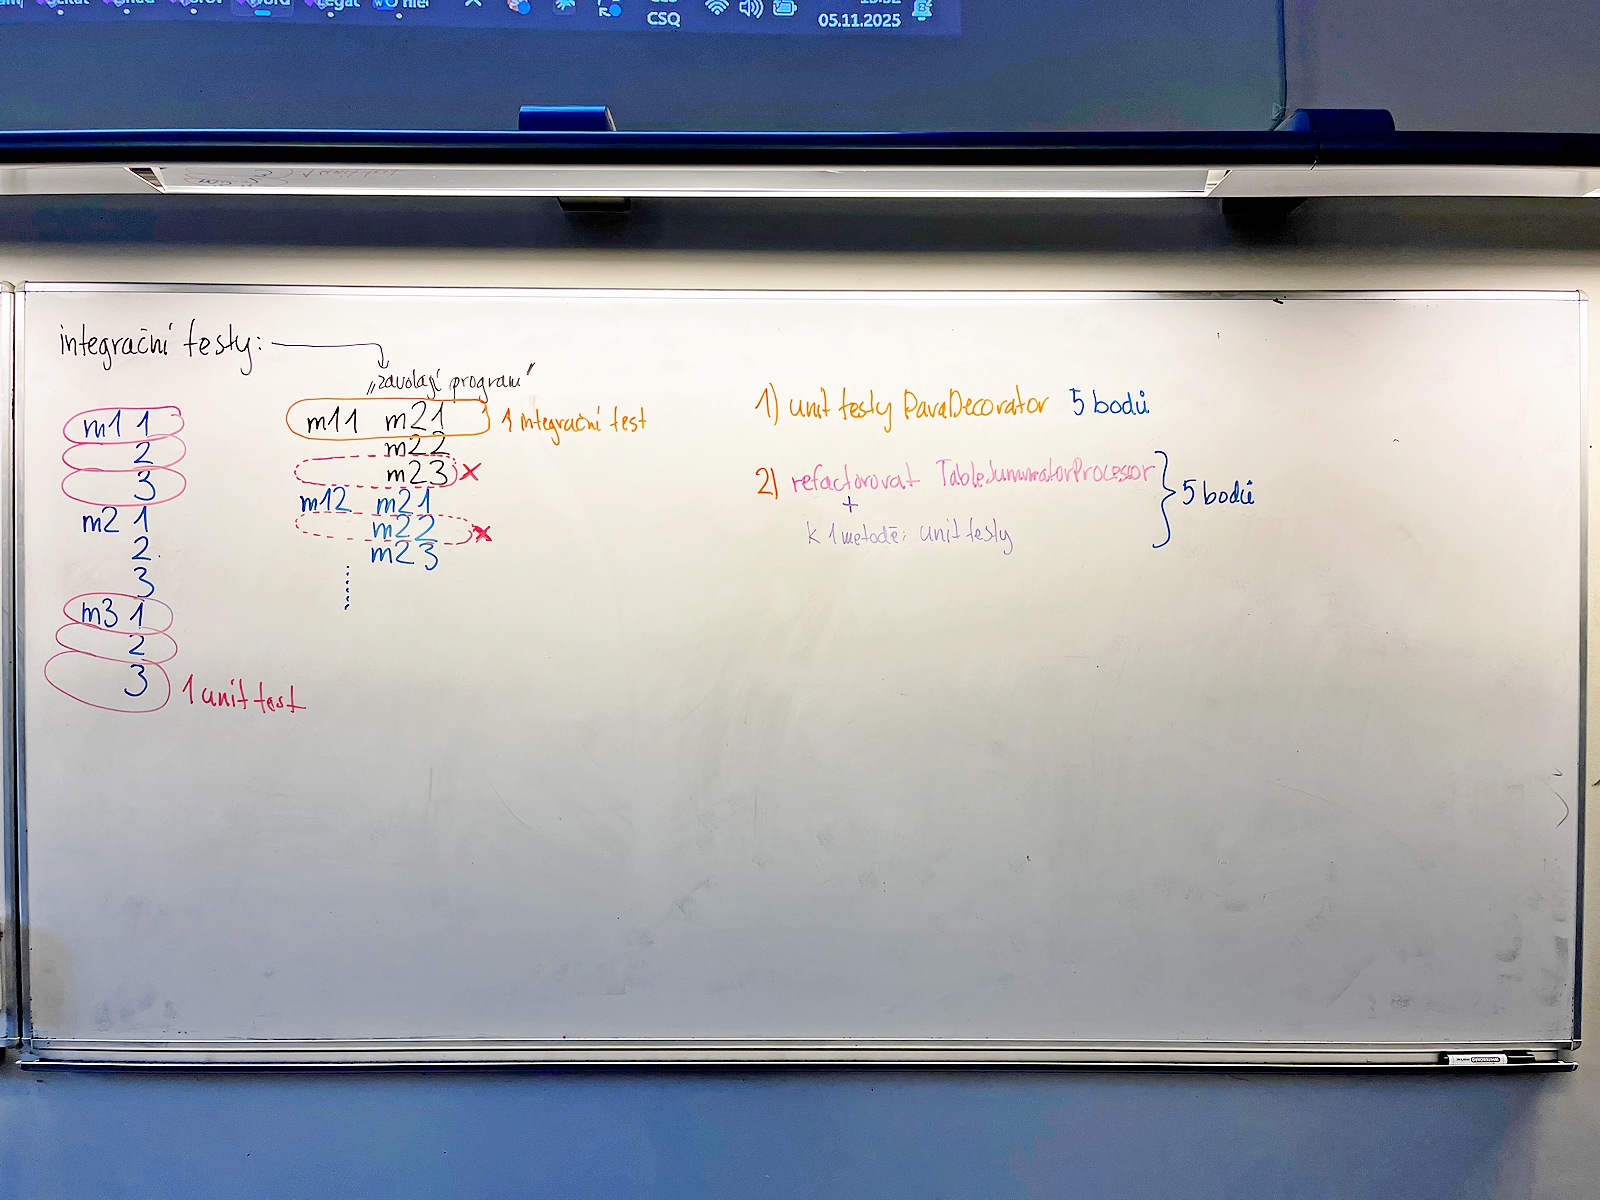 CSQ
05.11.2025
integrační testy:
„zavolají program"
m1 1
2
3
m2 1
2
3
m3 1
2
3
1 unit test
m11 m21
1 integrační test
m22
m23 x
m12 m21
m22 x
m23
1) unit testy ParaDecorator 5 bodů
2) refactorovat TableSummatorProcesor
+
k 1 metodě: unit testy
} 5 bodů